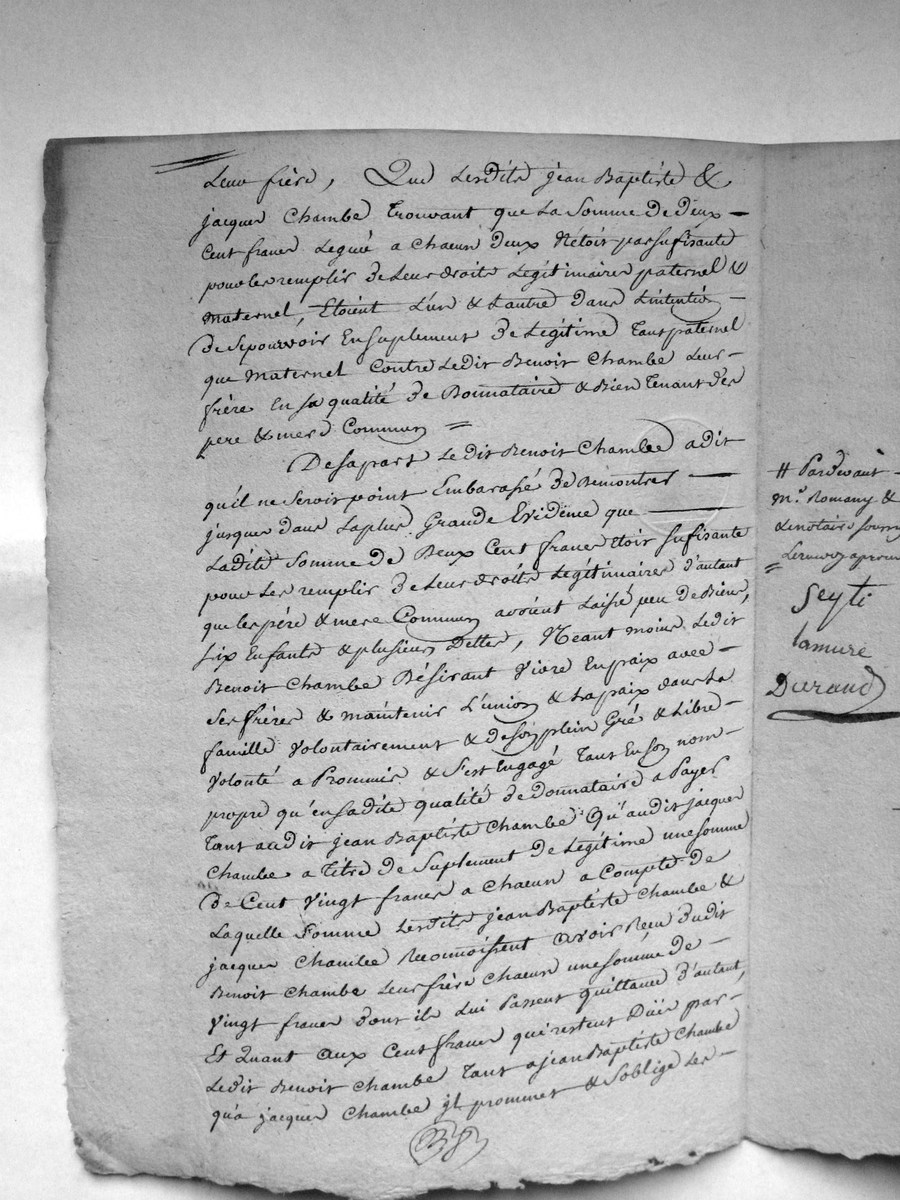 Leur frère, Que Lesdits jean Baptiste &
jacques Chambe Trouvant que La Somme De deux
Cent francs Legué a Chacun deux Nétoit pas sufisante
pour les remplir de Leurs droits Legitimaires paternel &
Maternel, Etoient L'un & Lautre dans Lintention
de Se pourvoir En suplement de Legitime Tant paternel
que Maternel Contre Ledit Benoit Chambe Leur
frère En Sa qualité de Donnataire & Bien Tenant des
pere & mere Communs =
De Sa part Ledit Benoit Chambe a dit
qu'il ne Seroit point Embarassé de Démontrer
jusques dans La plus Grande Evidence que
Ladite Somme de Deux Cent francs étoit sufisante
pour Les remplir de Leurs droits Legitimaires d'autant
que les pére & mere Communs avoient Laissé peu de Biens,
Six Enfants & plusieurs Dettes, Néant moins Ledit
Benoit Chambe Désirant Vivre En paix avec
Ses frères & maintenir L'union & La paix dans La
famille Volontairement & de Son plein Gré & Libre
Volonté a Prommis & S'est Engagé Tant En Son nom
propre qu'en Sa dite qualité de donnataire a Payer
Tant audit jean Baptiste Chambe Qu'audit jacques
Chambe a Titre de Suplement de Légitime une somme
de Cent Vingt francs a Chacun a Compte de
Laquelle Somme Lesdits jean Baptiste Chambe &
jacques Chambe Reconnoissent avoir Reçu dudit
Benoit Chambe Leur frère Chacun une somme de
Vingt francs dont ils Lui Passent quittance d'autant,
Et Quant aux Cent francs qui restent Dus par
Ledit Benoit Chambe Tant a jean Baptiste Chambe
qu'a jacques Chambe jl prommet & S'oblige Les
# Pardevant
Mr. Romany &
Le notaire
Le renvoy
Seyti
Lamure
Durand